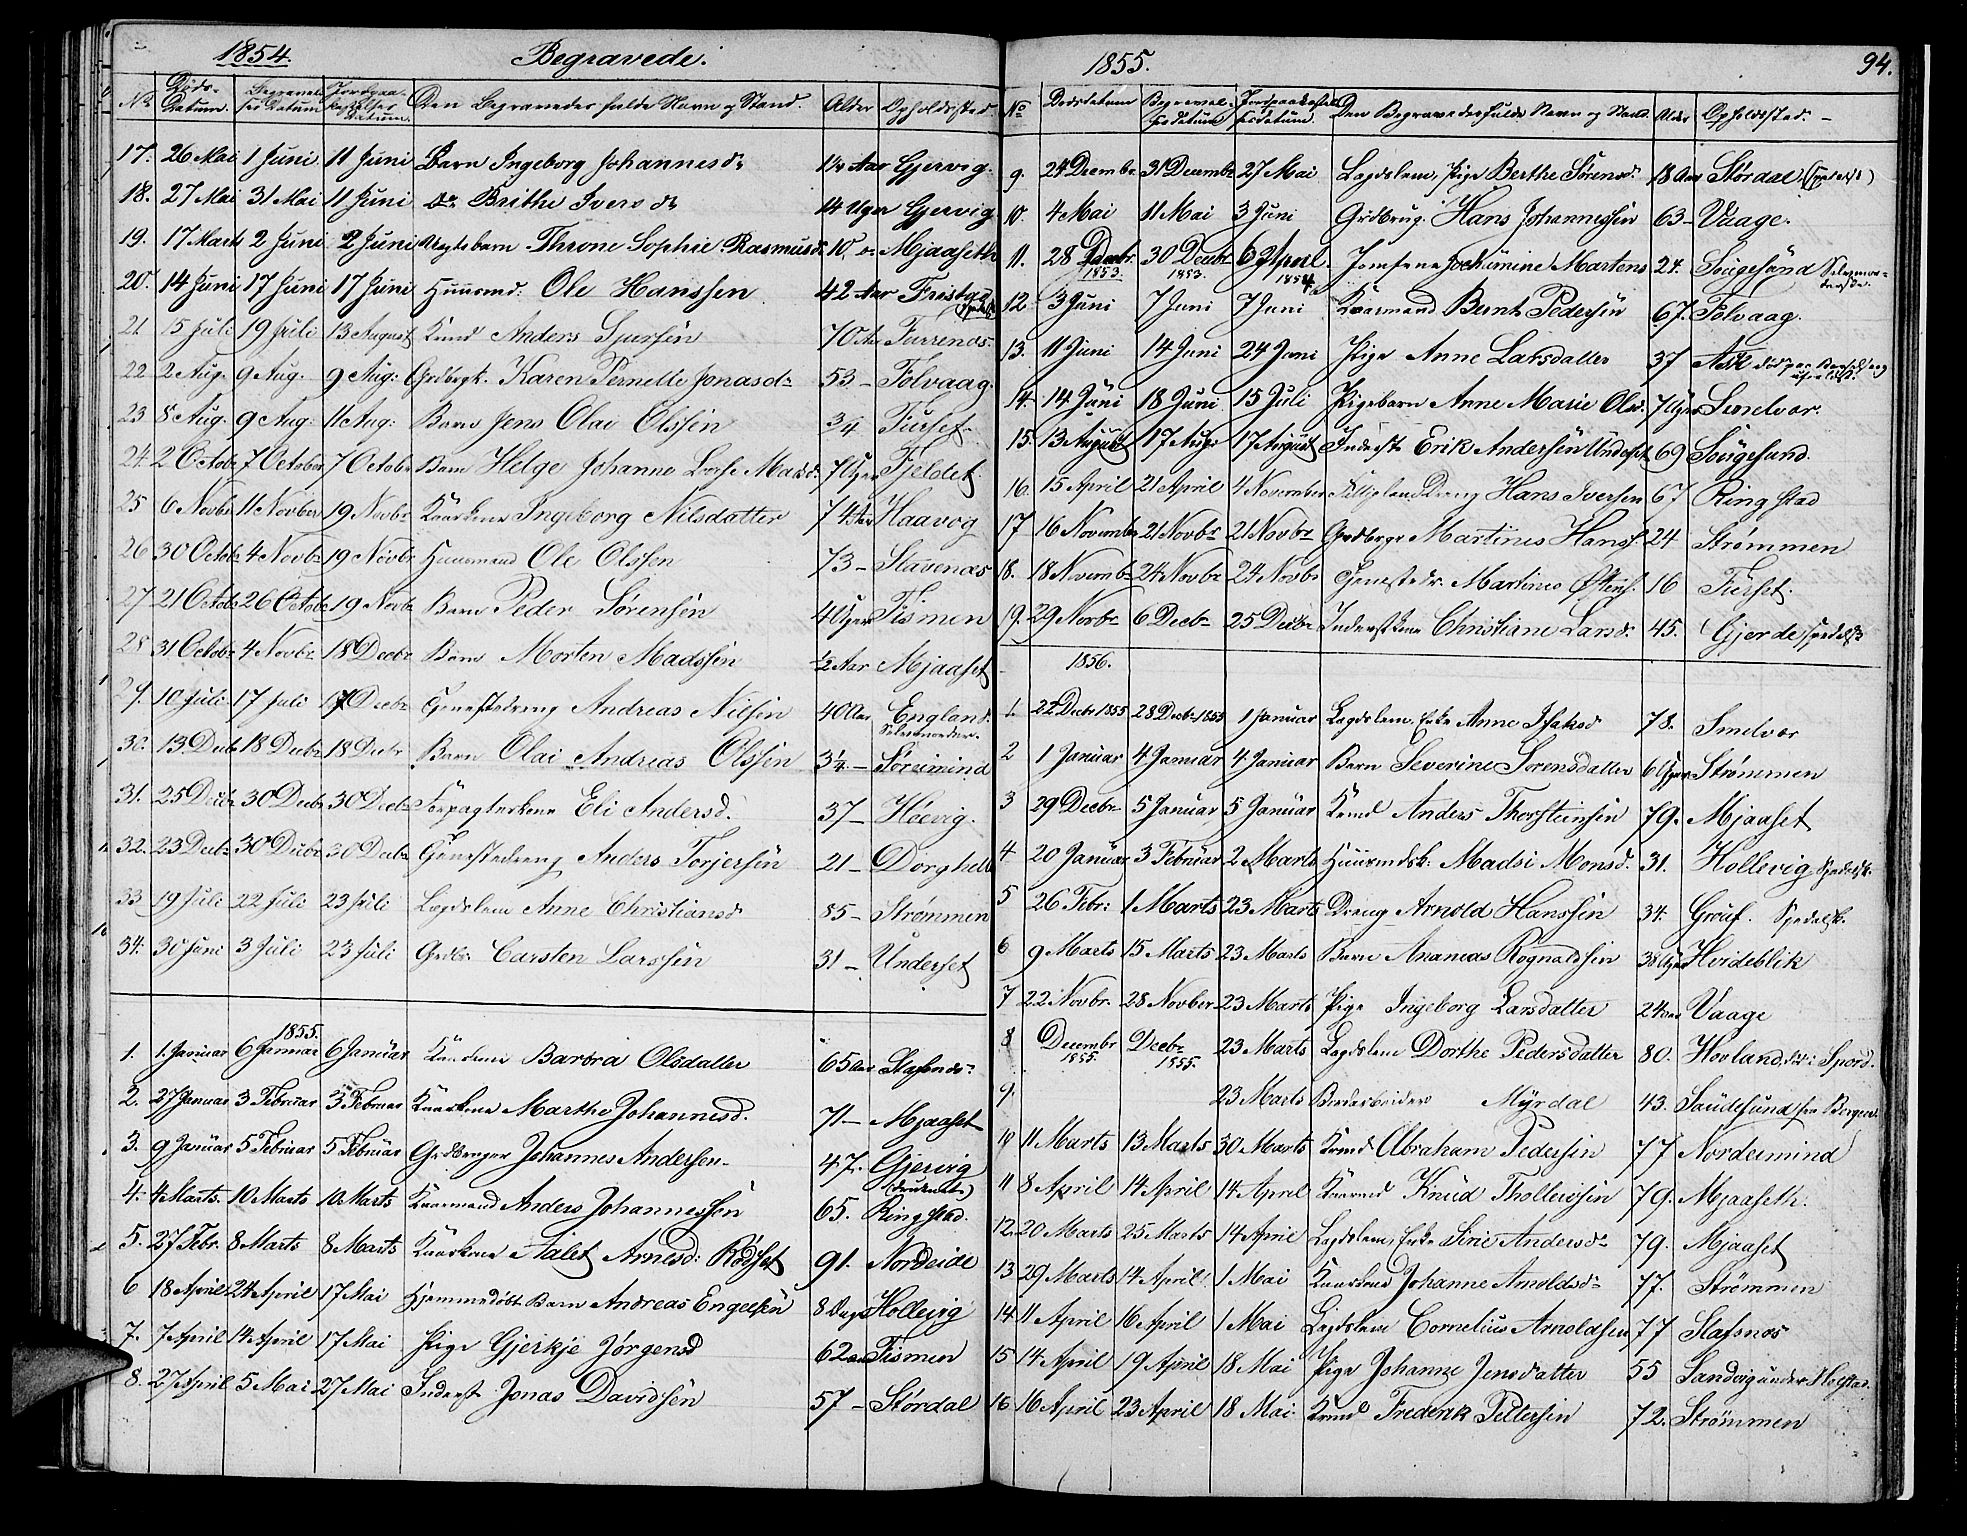 1854. Begravede.
No Døds-Datum. Begravelses Datum Jordpaakastelses Datum. Den Begravedes fulde Navn og Stand. Alder Opholdssted.
17. 26 Mai 1 Juni 11 Juni Barn Ingeborg Johannesd. Aar Gjervig.
18. 27 Mai 31 Mai 11 Juni do Brithe Iversd. 14 Uger Gjervig
19. 17 Marts 2 Juni 2 Juni Throne Sophie Rasmusd. 10 Mjaaseth
20. 14 Juni 17 Juni 17 Juni Huusmd. Ole Hanssen 42 Aar
21. 15 Juli 19 Juli 13 August Kaarmd Anders Sjursen 70 Aar Furrenes
22 2 Aug. 9 Aug. 9 Aug: Grdbrgk. Karen Pernelle Jonasd. 53 - Folvaag.
23 8 Aug. 9 Aug: 11 Aug: Barn Jens Olai Olssen 3/4 Furset
24. 2 Octobr 7 October 7 Octobr Barn Helge Johanne Madsd. 7 Uger Fjeldet.
25 6 Novbr 11 Novber 19 Novbr Kaarkone Ingeborg Nilsdatter 74 Aar Haavog
26 30 Octobr 4 Novbr 19 Novbr Huusmand Ole Olssen 73 - Slavenæs
27. 21 Octobr 26 Octobr 19 Novbr Barn Peder Sørensen 4 Uger Fismen
28 31 Octobr 4 Novbr 18 Decbr Barn Morten Madssen 1/2 Aar Mjaaset
29. 10 Juli 17 Juli 17 Decbr Tjenestedreng Andreas Nilsen 40 Aar England. Selvmorder.
30. 13 Decbr 18 Decbr 18 Decbr Barn Olai Andreas Olssen 3 1/4 - Søreimind
31. 25 Decbr 30 Decbr 30 Decbr Forpagterkone Eli Andersd. 37 - Høevig.
32. 23 Decbr 30 Decbr 30 Decbr Tjenestedreng Anders Torjersen 21 - Dorghell
33 19 Juli 22 Juli 23 Juli Lægdslem Anne Christiansd. 85 - Strømmen
34. 30 Juni 3 Juli 23 Juli Grdbr. Carsten Larssen 31 - Underset
1855.
1. 1. Januar 6 Januar 6 Januar Kaarkone Barbra Olsdatter 65 Aar Slafsnes.
2. 27 Januar 3 Februar 3 Februar Kaarkone Marthe Johannesd. 71 - Mjaaset
3. 9 Januar 5 Februar 5 Februar Grdbruger Johannes Andersen 47. Gjervig (druknet)
4. 4 Marts. 10 Marts 10 Marts Kaarmand Anders Johannessen 65. Ringstad.
5. 27 Febr. 8 Marts 8 Marts Kaarkone Aalet Arnesd: Rødset 91. Nordeide
6 18 April 24 April 17 Mai Hjemmedøbt Barn Andreas Engelsen 8 Dage Hollevig
7. 7 April 14 April 17 Mai Pige Gjerkje Jørgensd 62 Aar Fismen
8. 27 April 5 Mai 27 Mai Inderst Jonas Davidsen 57 - Størdal
1855. 94.
No Dødsdatum Begravelsesdatum Jordpaakastelsesdatum. Den Begravedes fulde Navn og Stand. Alder Opholdssted. -
9. 24 Decembr. 31 Decembr 27 Mai Lægdslem, Pige Berthe Sørensd. 18 Aar Størdal (spedalsk)
10. 4 Mai 11 Mai 3 Juni Grdbrug. Hans Johannessen 63 - Vaage.
11. 28 Decbr. 1853. 30 Decbr 1853. 6 April. 1854 Jomfrue Jochumine Martens 24. Sougesund Selvmorderske.
12. 3 Juni 7 Juni 7 Juni Kaarmand Bernt Pedersen 67. Folvaag.
13. 11 Juni 14 Juni 24 Juni Pige Anne Larsdatter 37 Ask
14. 14 Juni 18 Juni 15 Juli Pigebarn Anne Marie Olsd. 7 Uger Smelvor.
15. 13 August 17 Augs 17 August Inderst Erik Andersen Underset 69 Sougesund.
16. 15 April 21 April 4 November Hans Iversen 67 Ringstad
17 16 Novembr 21 Novbr 21 Novbr Grdbrgr Martinus Hans. 24 Strømmen
18. 18 Novembr 24 Novbr 24 Novbr Tjenestedr. Martinus 16 Furset.
19. 29 Novbr. 6 Decbr 25 Decbr Inderstkone Christiane Larsd. 45. Gjerde spedalsk
1856.
1. 22 Decbr 1855 28 Decbr 1855 1 Januar Lægdslem, Enke Anne Isaksd 78. Smelvor
2 1 Januar 4 Januar 4 Januar Barn Severine Sorensdatter 6 Uger Strømmen
3 29 Decbr 5 Januar 5 Januar Kmd Anders Thorsteinsen 79. Mjaaset
4 20 Januar 3 Februar 2 Marts Huusmdsk. Madsi Monsd. 31. Hollevig Spedalsk.
5 26 Febr: 1 Marts 23 Marts Dreng Arnold Hanssen 34. Grouf. Spedalsk.
6 9 Marts 15 Marts 23 Marts Barn Ananias Rognaldsen 38 Uger Hvideblik
7 22 Novbr. 28 Novber 23 Marts Pige Ingeborg Larsdatter 24 Aar Vaage
8 Decembr 1855. Decbr 1855. 23 Marts Lægdslem Dorthe Pedersdatter 80. Hovland,
9. 23 Marts Myrdal 43. Saudesund fra Bergen.
10 11 Marts 13 Marts 30 Marts Kmd Abraham Pedersen 77 Nordeimind
11 8 April 14 April 14 April Kaarmd Knud Thollevsen 79. Mjaaseth.
12. 20 Marts 25 Marts 14 April Lægdslem, Enke Serie Andersd. 79. Mjaaset
13 29 Marts 14 April 1 Mai Kaarkone Johanne Arnoldsd. 77. Strømmen
14 11 April 16 April 1 Mai Lægdslem Cornelius Arnoldsen 77 Slafsnes
15 14 April 19 April 18 Mai Pige Johanne Jensdatter 55 Sandvig under
16 16 April 23 April 18 Mai Kmd Frederik Peltersen 72. Strømmen